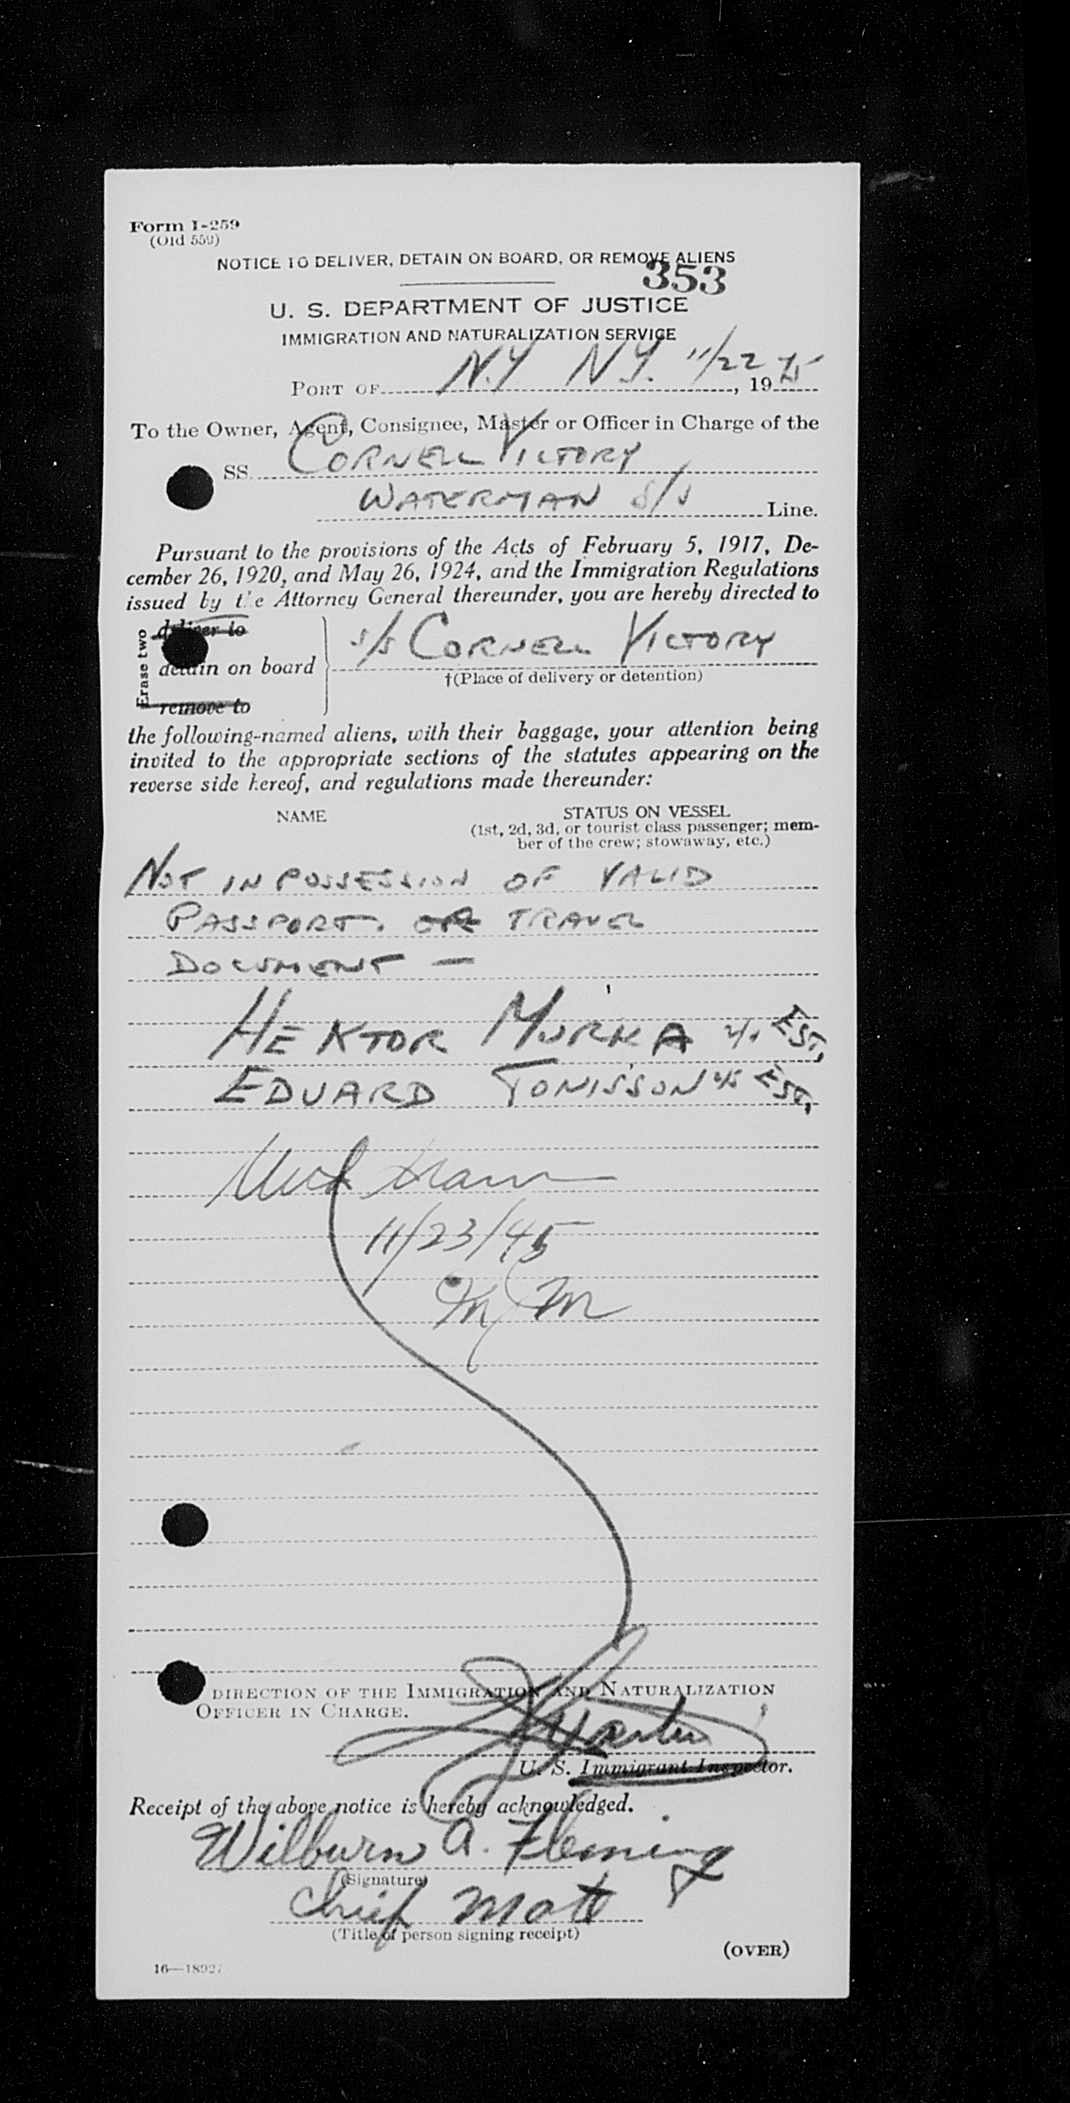 Form I-259
(Old 559)
NOTICE TO DELIVER, DETAIN ON BOARD, OR REMOVE ALIENS
353
U. S. DEPARTMENT OF JUSTICE
IMMIGRATION AND NATURALIZATION SERVICE
PORT OF N.Y N.Y. 11/22, 1945
To the Owner, Agent, Consignee, Master or Officer in Charge of the
SS. CORNELL VICTORY
WATERMAN S/S Line.
Pursuant to the provisions of the Acts of February 5, 1917, De-
cember 26, 1920, and May 26, 1924, and the Immigration Regulations
issued by the Attorney General thereunder, you are hereby directed to
Erase two
deliver to
detain on board
remove to
S/S CORNELL VICTORY
†(Place of delivery or detention)
the following-named aliens, with their baggage, your attention being
invited to the appropriate sections of the statutes appearing on the
reverse side hereof, and regulations made thereunder:
NAME
STATUS ON VESSEL
(1st, 2d, 3d, or tourist class passenger; mem-
ber of the crew; stowaway, etc.)
NOT IN POSSESSION OF VALID
PASSPORT. OR TRAVEL
DOCUMENT —
HEKTOR MURKA EST.
EDUARD TONISSON EST.
11/23/45
DIRECTION OF THE IMMIGRATION AND NATURALIZATION
OFFICER IN CHARGE.
U. S. Immigrant Inspector.
Receipt of the above notice is hereby acknowledged.
Wilburn A. Fleming
(Signature)
Chief Mate
(Title of person signing receipt)
(OVER)
16—18927